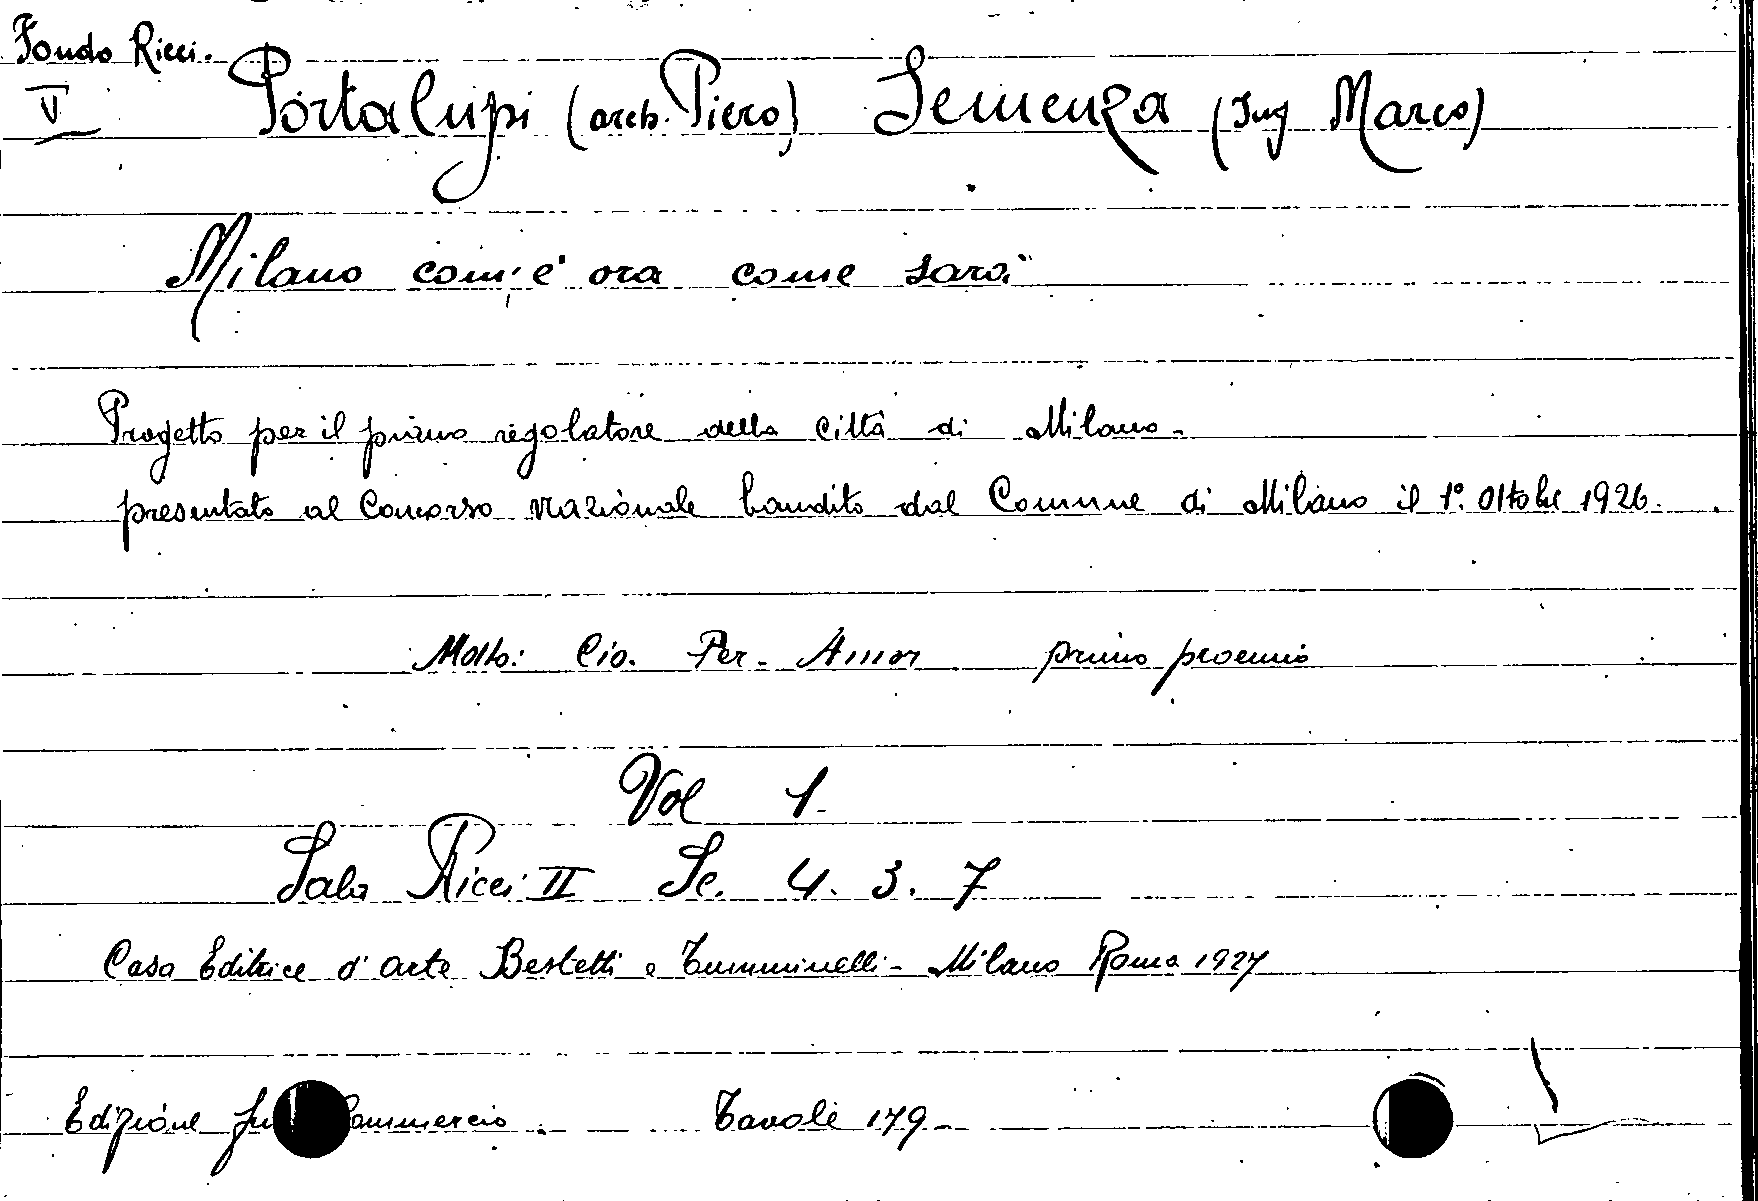 Fondo Ricci.
V Portalupi (arch. Piero) Semenza (Ing Marco)
Milano com'è ora come sarà
Progetto per il primo regolatore della città di Milano -
presentato al Concorso Nazionale bandito dal Comune di Milano il 1° Ottobre 1926.
Motto: Cio. Per. Amor primo proemio
Vol 1.
Sala Ricci II Sc. 4. 3. 7
Casa Editrice d'arte Bestetti e Tumminelli - Milano Roma 1927
Edizione Commercio. Tavole 179